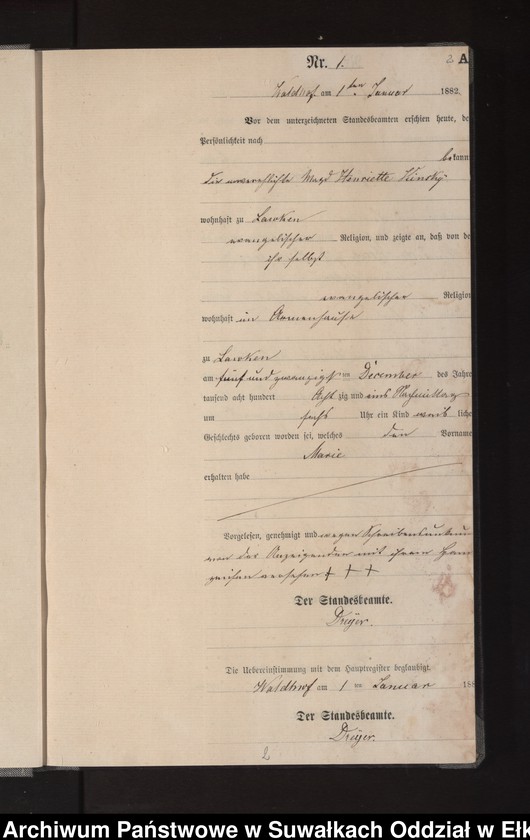 2 A
Nr. 1.
Waldhof am 1ten Januar 1882.
Vor dem unterzeichneten Standesbeamten erschien heute, de
Persönlichkeit nach
bekann
die unverehlichte Magd Henriette
wohnhaft zu
evangelischer Religion, und zeigte an, daß von de
ihr selbst
evangelischer Religion
wohnhaft im Armenhause
zu
am fünf und zwanzigsten December des Jahre
tausend acht hundert Acht zig und eins Nachmittag
um sechs Uhr ein Kind weib liche
Geschlechts geboren worden sei, welches den Vorname
Marie
erhalten habe
Vorgelesen, genehmigt und wegen Schreibensunkun
von der Anzeigenden mit ihrem Han
zeichen versehen + + +
Der Standesbeamte.
Dreyer.
Die Uebereinstimmung mit dem Hauptregister beglaubigt.
Waldhof am 1 ten Januar 188
Der Standesbeamte.
Dreyer.
2
Archiwum Państwowe w Suwałkach Oddział w Ełk